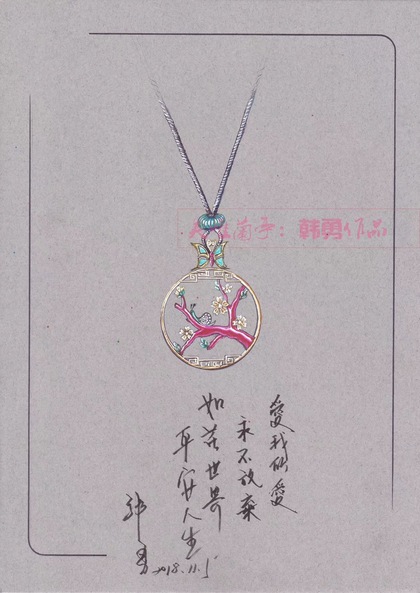 韩勇作品
愛我所愛
永不放棄
如花世界
平安人生
韩勇
2018.11.5